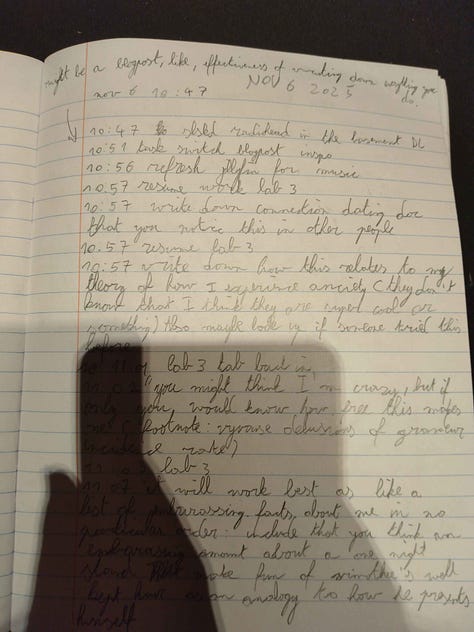 might be a blogpost, like, effectiveness of writing down anything you do.
NOV 6 2025
nov 6 10:47
10:47 started radiohead in the basement DL
10:51 task switch blogpost inspo
10:56 refresh jellyfin for music
10:57 resume work lab 3
10:57 write down connection dating doc
that you notice this in other people
10:57 resume lab 3
10:57 write down how this relates to my
theory of how I experience anxiety (they don't
know that I think they are super cool or
something) Also maybe look up if someone tried this
before
lab 3 tab back in
"you might think I'm crazy, but if
only you would know how free this makes
me (footnote: delusions of grandeur
rate)
lab 3
it will work best as like a
list of embarrassing facts about me in no
particular order: include that you think an
embarrassing amount about a one night
stand make fun of well
kept hair as an analogy to how he presents
himself